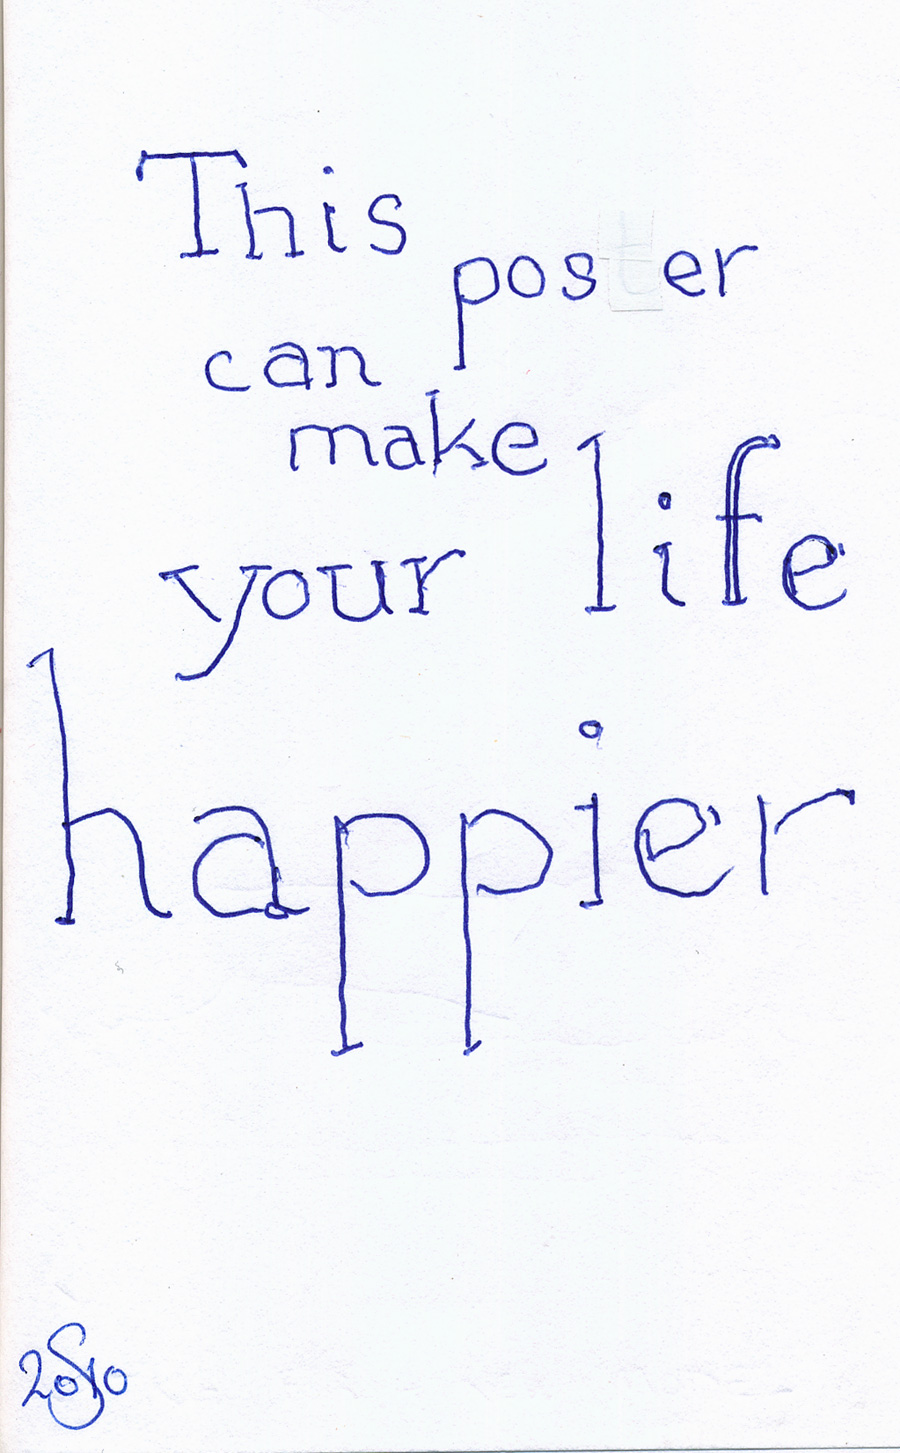 This
poster
can
make
your life
happier
2010